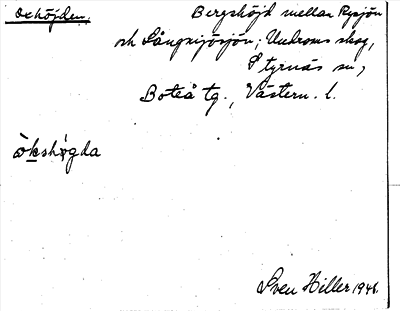 Oxhöjden,
Bergshöjd mellan Rysjön
och Långrisjösjön; Undroms skog,
Styrnäs sn,
Boteå tg., Västern. l.
òkshøgda
Sven Hiller 1946.